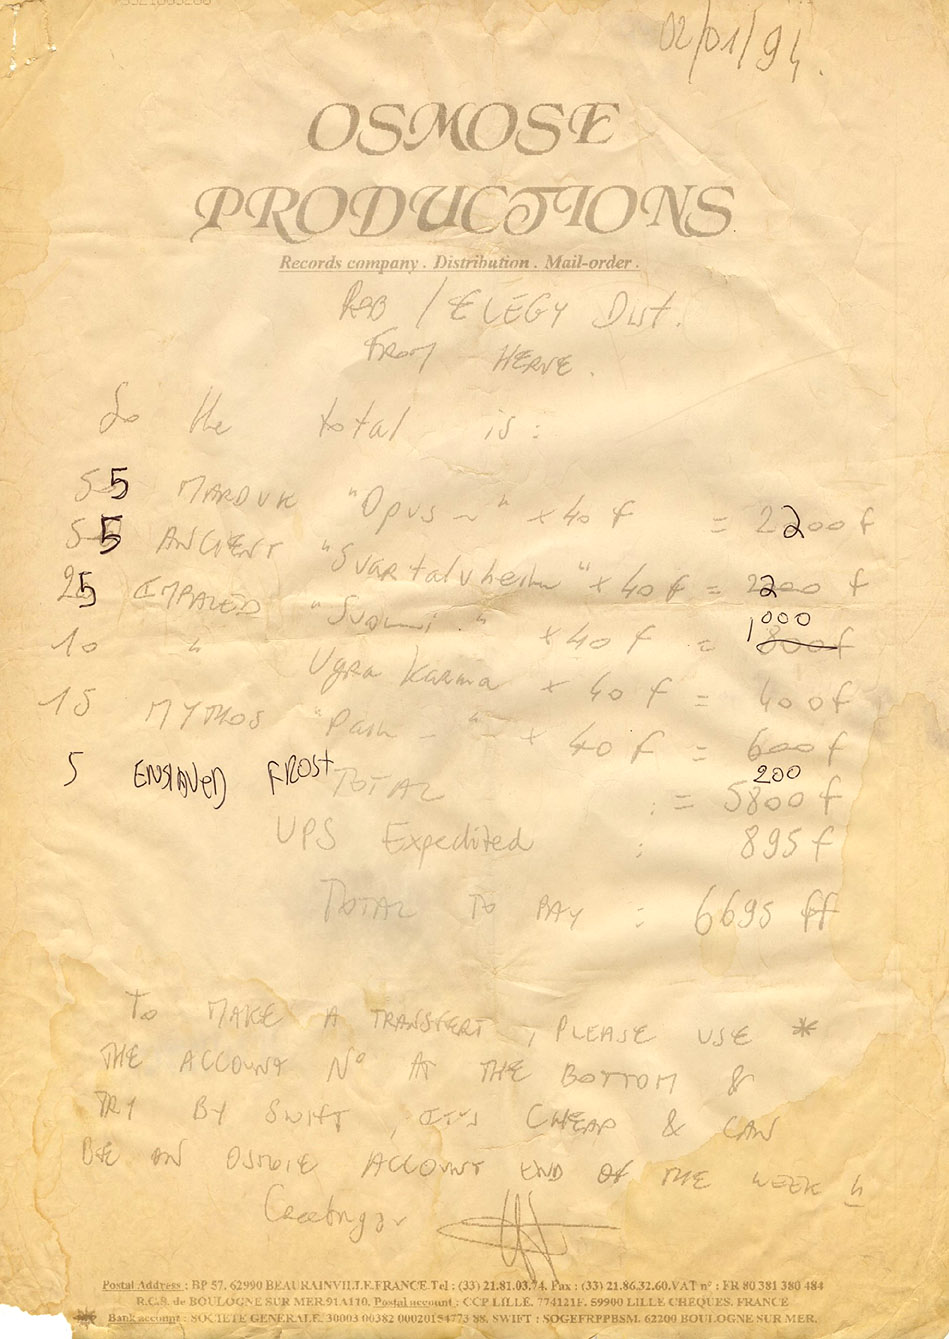 02/01/94.
OSMOSE
PRODUCTIONS
Records company . Distribution . Mail-order .
ROB / ELEGY Dist.
FROM HERVE.
So the total is :
55 MARDUK "Opus ~" x 40 f = 2200 f
55 ANCIENT "Svartalvheim" x 40 f = 2200 f
25 IMPALED "Suomi." x 40 f = 1000 800 f
10 " Ugra Karma x 40 f = 400 f
15 MYTHOS "Pain - " - x 40 f = 600 f
5 ENSLAVED FROST 200
TOTAL : = 5800 f
UPS Expedited : 895 f
TOTAL TO PAY : 6695 ff
TO MAKE A TRANSFERT, PLEASE USE *
THE ACCOUNT N° AT THE BOTTOM &
TRY BY SWIFT, IT'S CHEAP & CAN
BE ON OSMOSE ACCOUNT END OF THE WEEK !!
Greetings
Postal Address : BP 57. 62990 BEAURAINVILLE.FRANCE.Tel : (33) 21.81.03.74. Fax : (33) 21.86.32.60.VAT n° : FR 80 381 380 484
R.C.S. de BOULOGNE SUR MER.91A110. Postal account : CCP LILLE. 774121F. 59900 LILLE CHEQUES. FRANCE
* Bank account : SOCIETE GENERALE. 30003 00382 00020154773 88. SWIFT : SOGEFRPPBSM. 62200 BOULOGNE SUR MER.